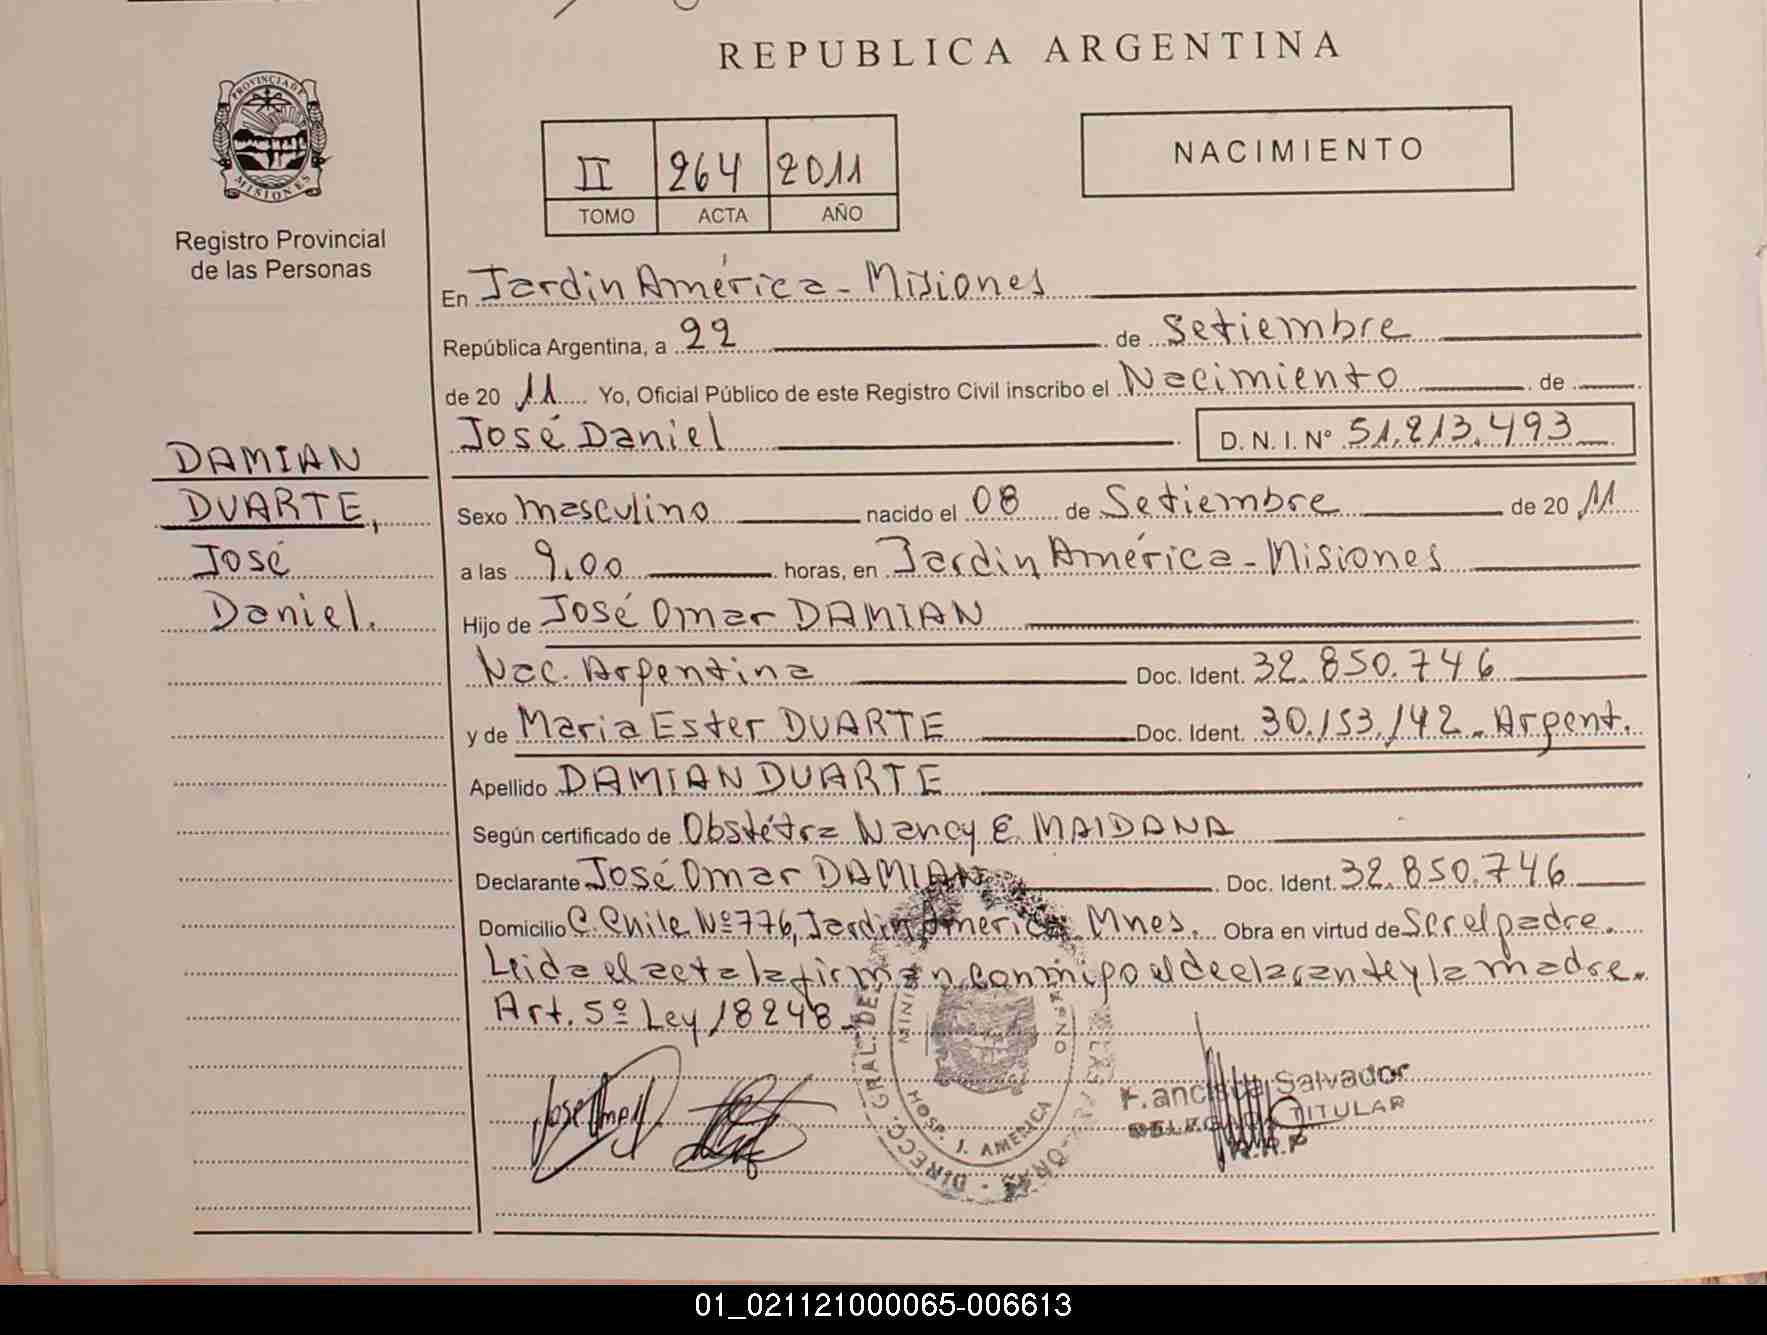 REPUBLICA ARGENTINA
PROVINCIA DE
MISIONES
Registro Provincial
de las Personas
II 264 2011
TOMO ACTA AÑO
NACIMIENTO
En Jardin América - Misiones
República Argentina, a 22 de Setiembre
de 20 11 Yo, Oficial Público de este Registro Civil inscribo el Nacimiento de
José Daniel D. N. I. Nº 51.213.493
DAMIAN
DUARTE,
José
Daniel.
Sexo masculino nacido el 08 de Setiembre de 20 11
a las 9,00 horas, en Jardin América - Misiones
Hijo de José Omar DAMIAN
Nac. Argentina Doc. Ident. 32.850.746
y de Maria Ester DUARTE Doc. Ident. 30.153.142 - Argent.
Apellido DAMIAN DUARTE
Según certificado de Obstétra Nancy E. MAIDANA
Declarante José Omar DAMIAN Doc. Ident. 32.850.746
Domicilio C. Chile Nº 776, Jardin América Mnes. Obra en virtud de Ser el padre.
Leida el acta la firman conmigo el declarante y la madre.
Art. 5º Ley 18248 -
DIRECC. GRAL. DE
HOSP. J. AMERICA
Salvador
TITULAR
01_021121000065-006613